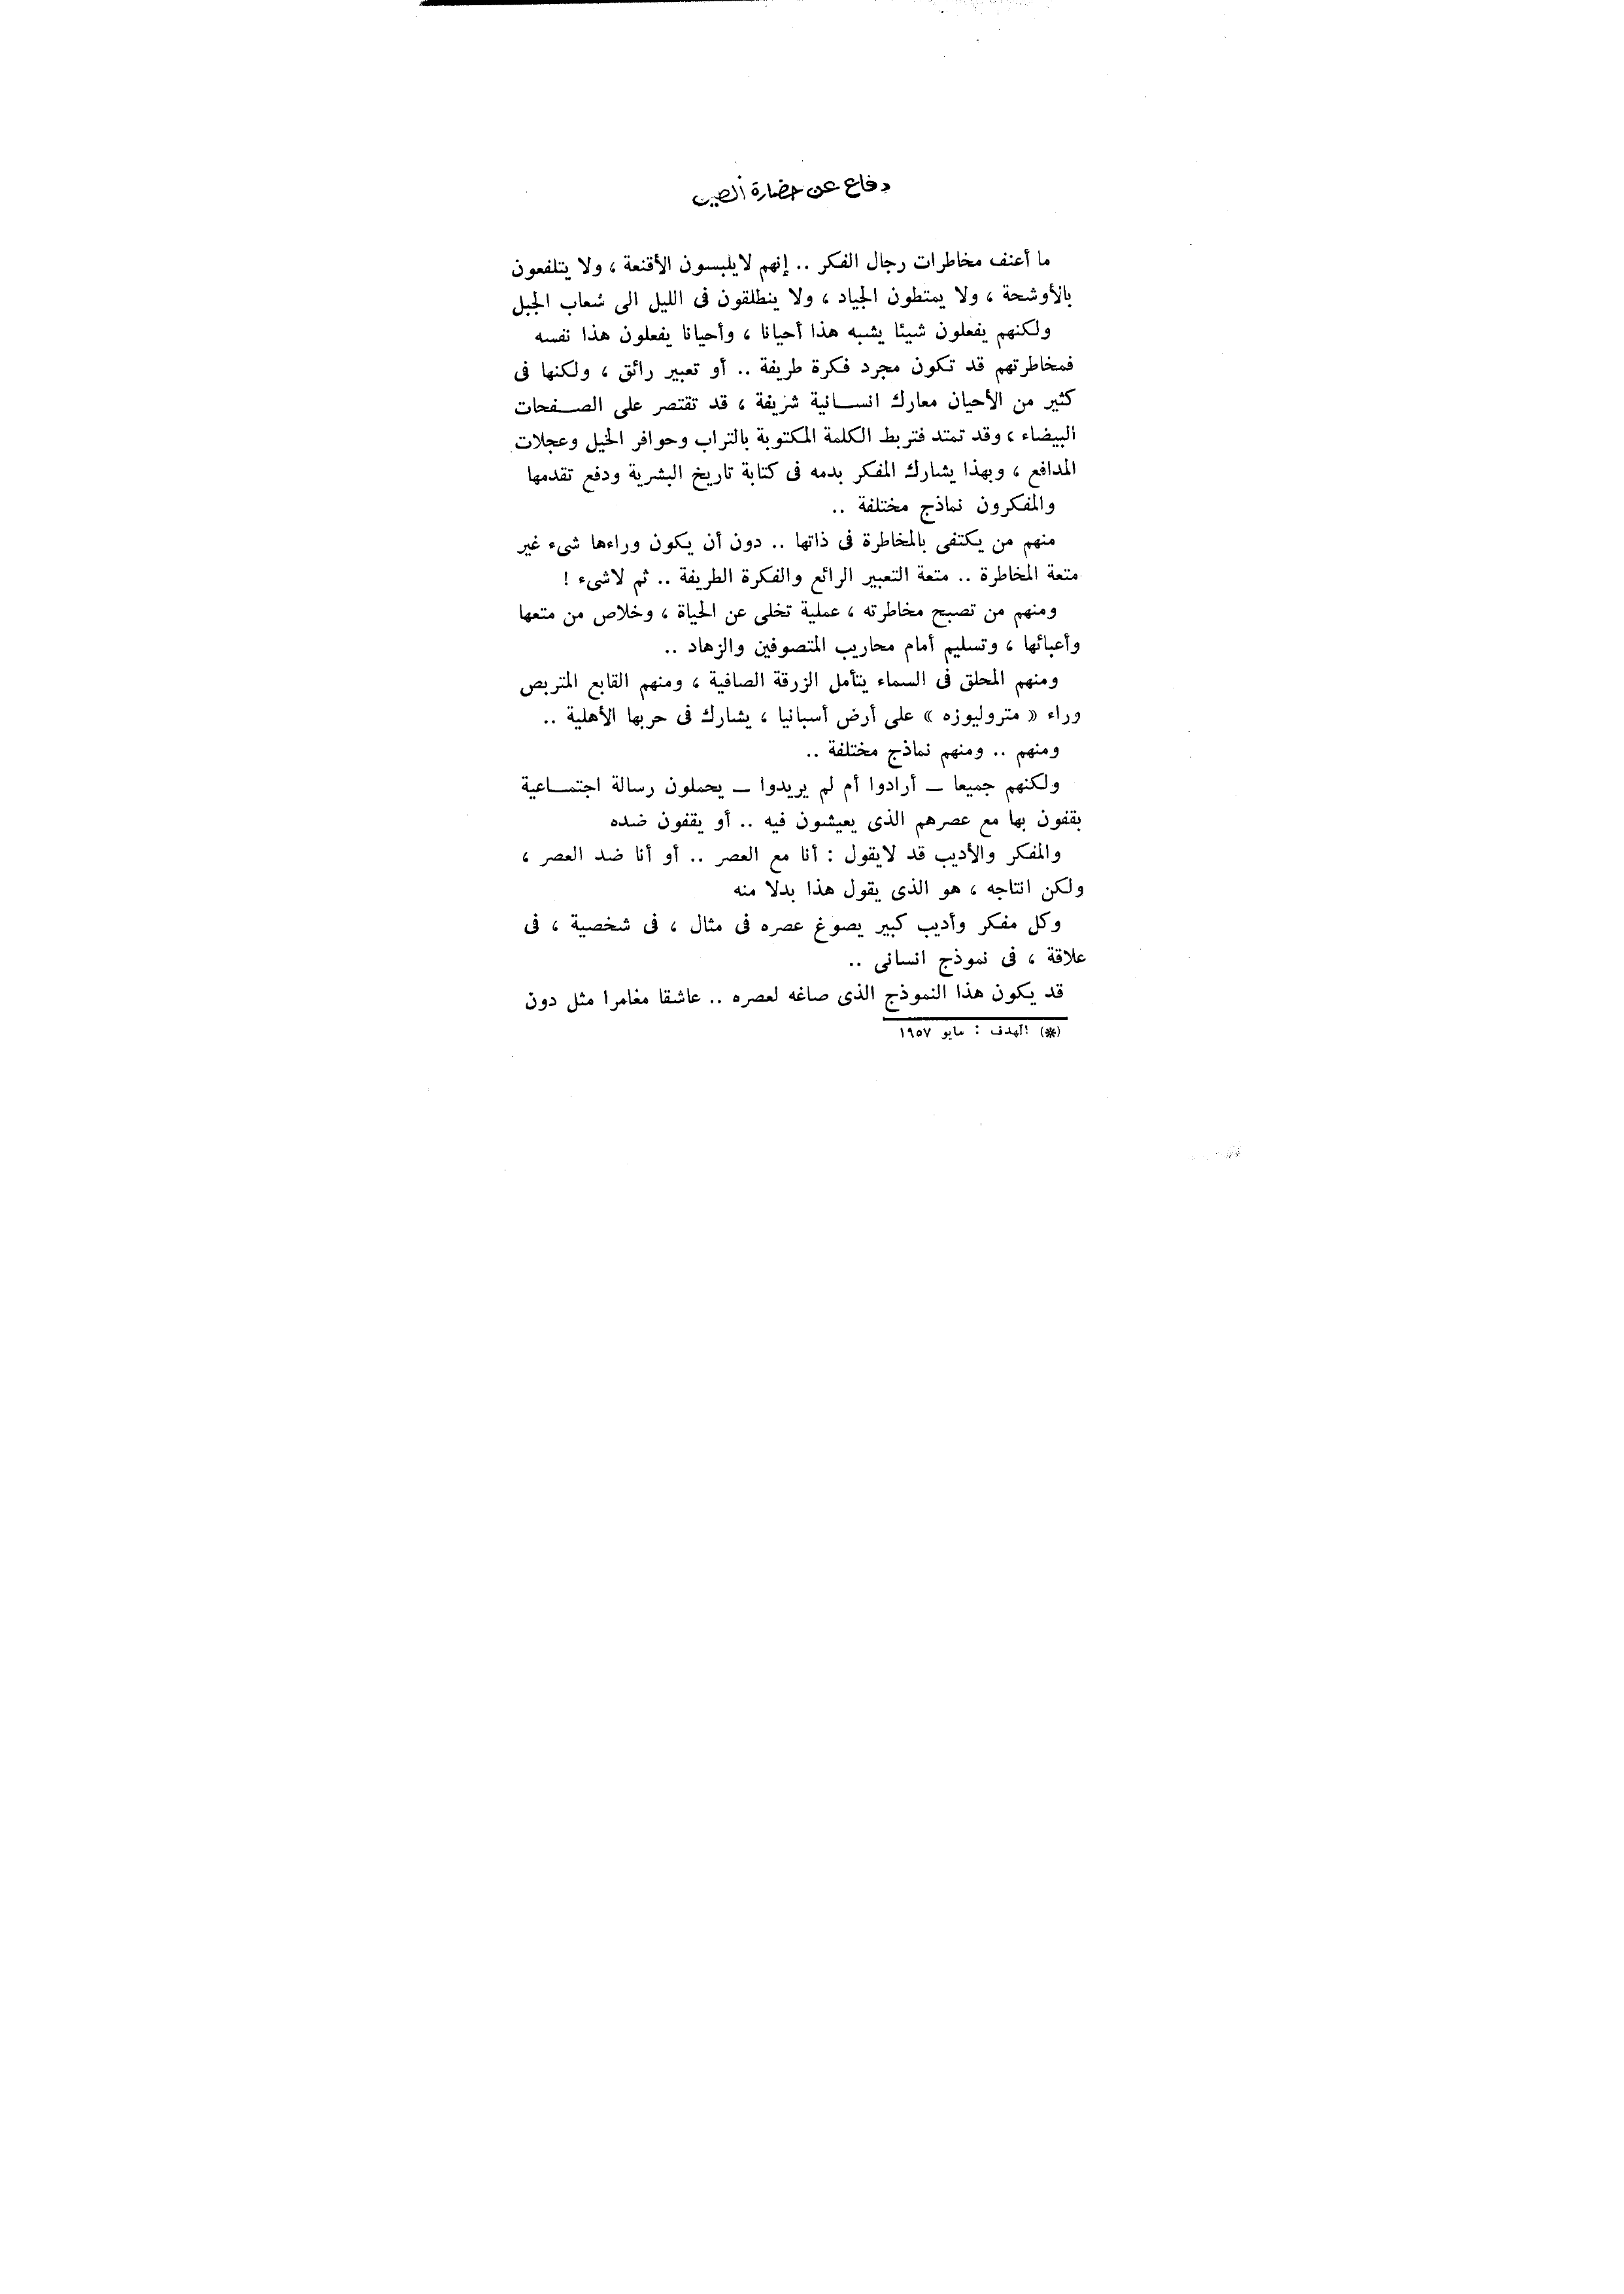 دفاع عن حضارة الصين
ما أعنف مخاطرات رجال الفكر .. إنهم لايلبسون الأقنعة ، ولا يتلفعون
بالأوشحة ، ولا يمتطون الجياد ، ولا ينطلقون فى الليل الى شعاب الجبل
ولكنهم يفعلون شيئا يشبه هذا أحيانا ، وأحيانا يفعلون هذا نفسه
فمخاطرتهم قد تكون مجرد فكرة طريفة .. أو تعبير رائق ، ولكنها فى
كثير من الأحيان معارك انســانية شريفة ، قد تقتصر على الصــفحات
البيضاء ، وقد تمتد فتربط الكلمة المكتوبة بالتراب وحوافر الخيل وعجلات
المدافع ، وبهذا يشارك المفكر بدمه فى كتابة تاريخ البشرية ودفع تقدمها
والمفكرون نماذج مختلفة ..
منهم من يكتفى بالمخاطرة فى ذاتها .. دون أن يكون وراءها شىء غير
متعة المخاطرة .. متعة التعبير الرائع والفكرة الطريفة .. ثم لاشىء !
ومنهم من تصبح مخاطرته ، عملية تخلى عن الحياة ، وخلاص من متعها
وأعبائها ، وتسليم أمام محاريب المتصوفين والزهاد ..
ومنهم المحلق فى السماء يتأمل الزرقة الصافية ، ومنهم القابع المتربص
وراء « متروليوزه » على أرض أسبانيا ، يشارك فى حربها الأهلية ..
ومنهم .. ومنهم نماذج مختلفة ..
ولكنهم جميعا ــ أرادوا أم لم يريدوا ــ يحملون رسالة اجتمــاعية
يقفون بها مع عصرهم الذى يعيشون فيه .. أو يقفون ضده
والمفكر والأديب قد لايقول : أنا مع العصر .. أو أنا ضد العصر ،
ولكن انتاجه ، هو الذى يقول هذا بدلا منه
وكل مفكر وأديب كبير يصوغ عصره فى مثال ، فى شخصية ، فى
علاقة ، فى نموذج انسانى ..
قد يكون هذا النموذج الذى صاغه لعصره .. عاشقا مغامرا مثل دون
(*) الهدف : مايو ١٩٥٧